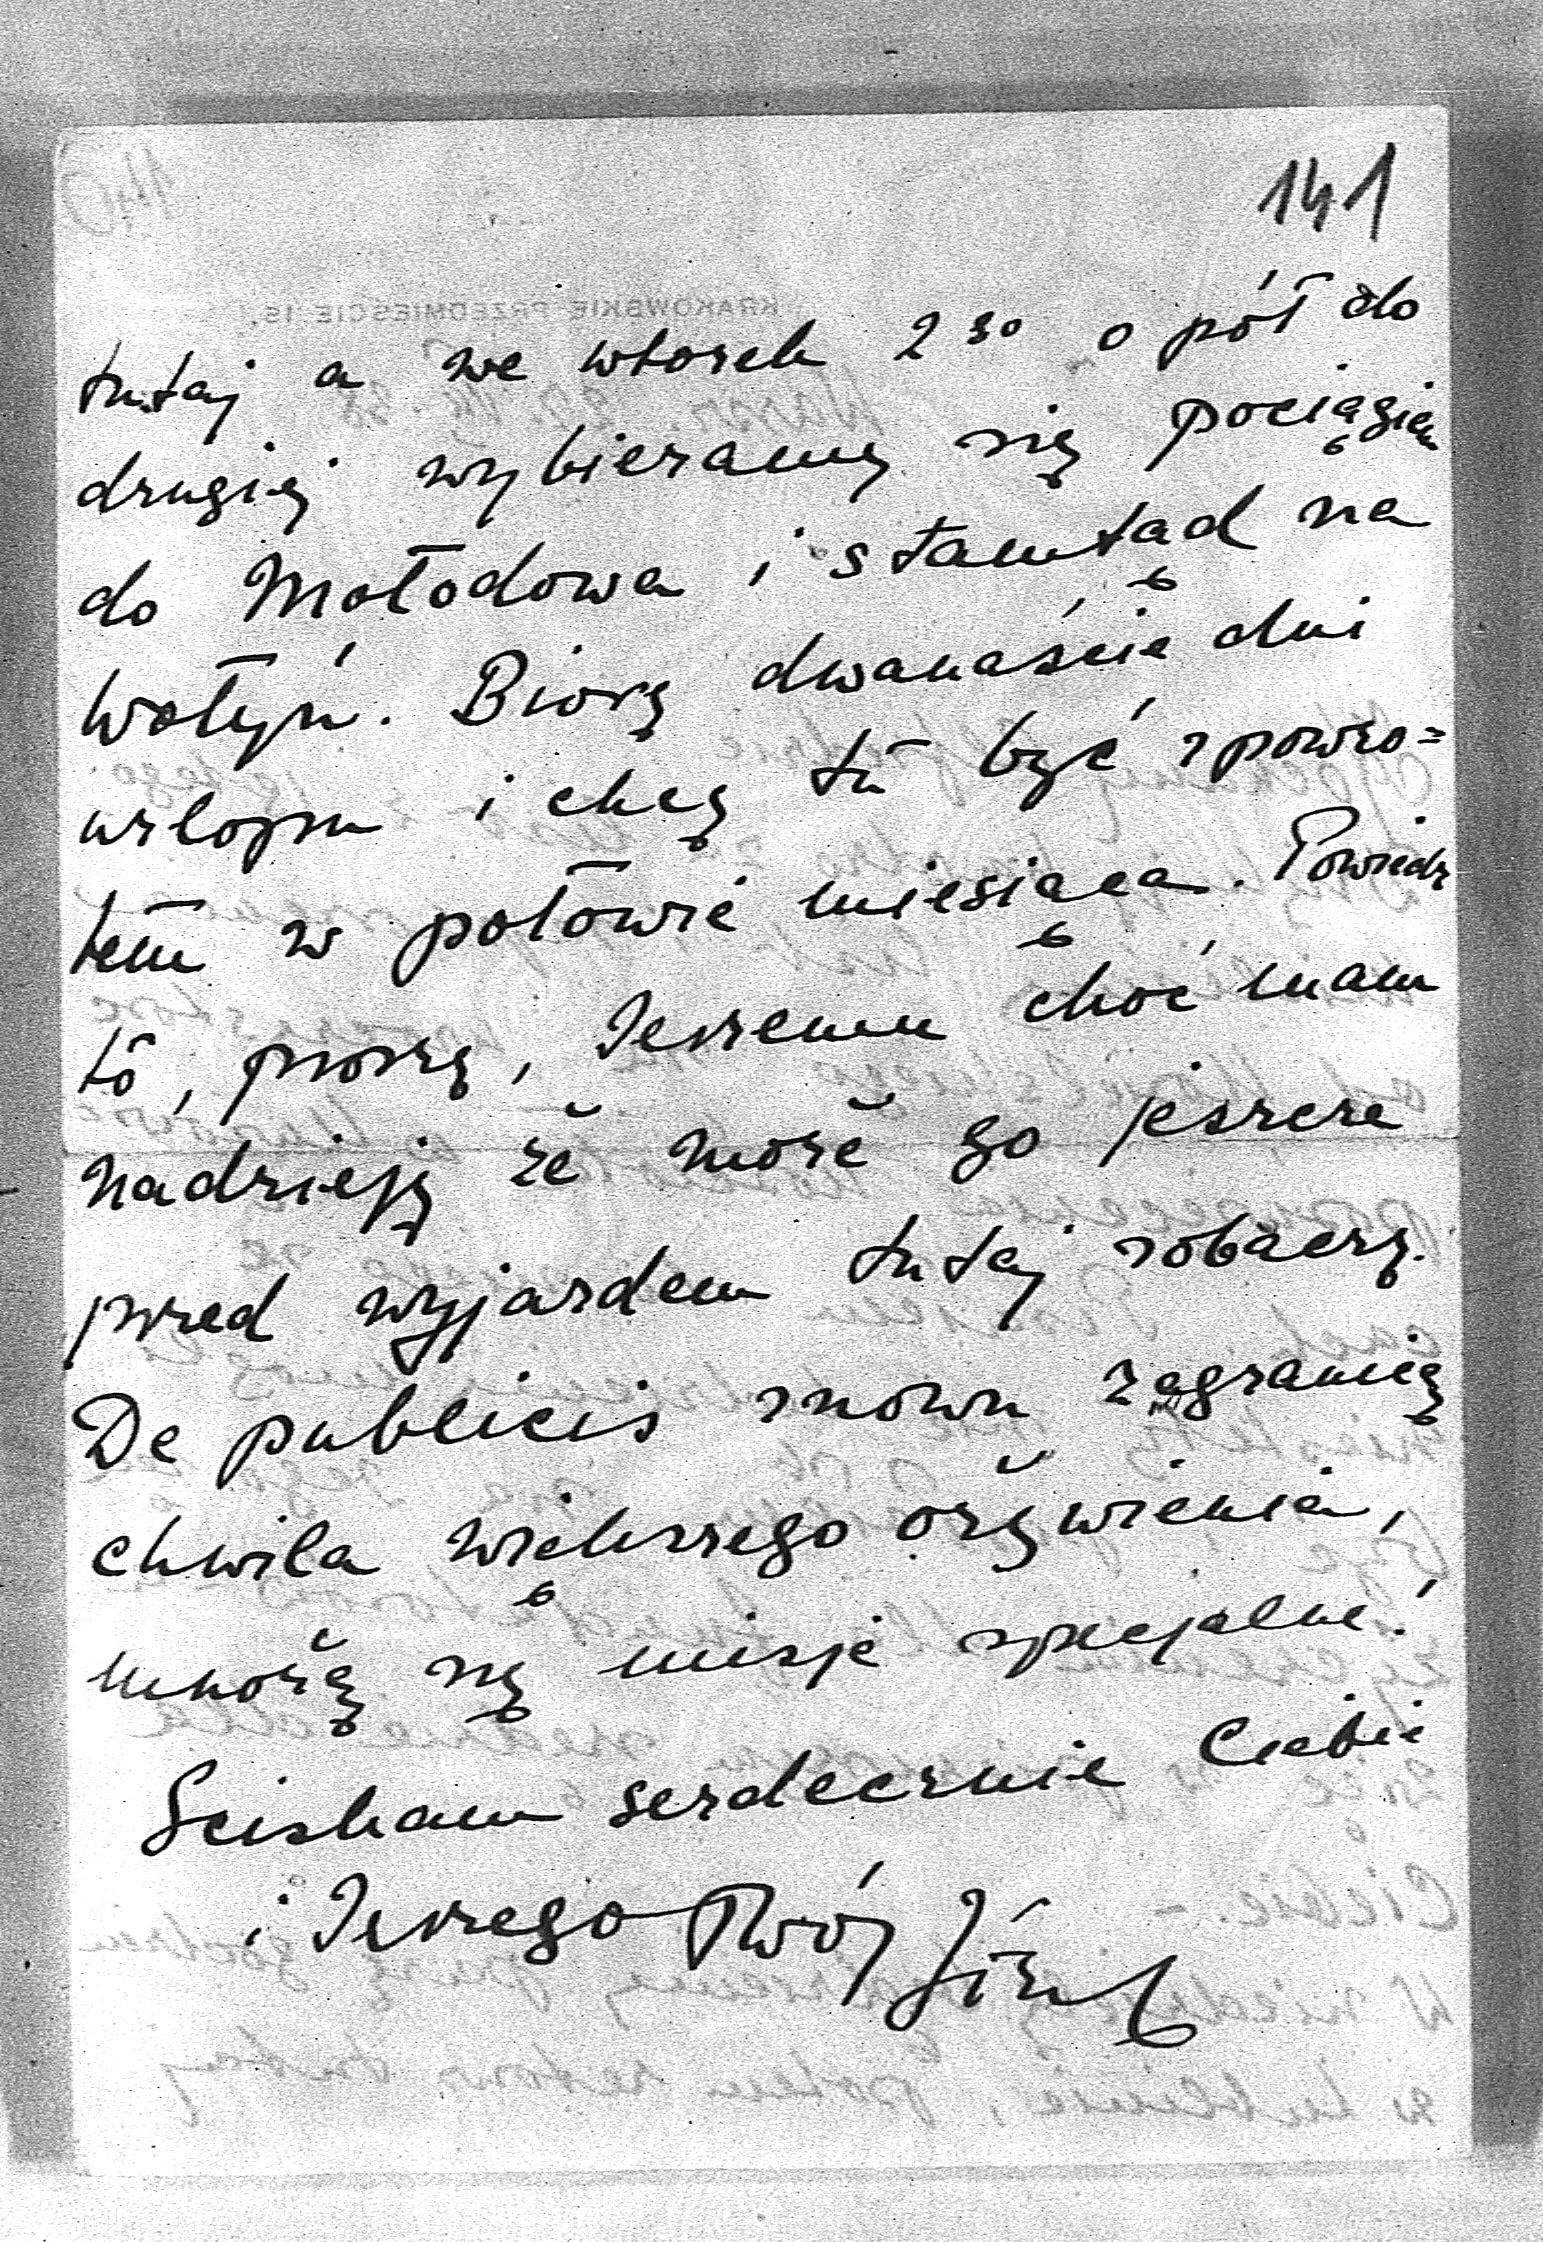 141
tutaj a we wtorek 2go o pół do
drugiej wybieramy się pociągiem
do Mołodowa i stamtąd na
Wołyń. Biorę dwanaście dni
urlopu i chcę tu być zpowro=
tem w połowie miesiąca. Powiedz
to, proszę, Jerzemu choć mam
nadzieję że może go jeszcze
przed wyjazdem tutaj zobaczę.
De publicis znowu zagranicą
chwila większego ożywienia,
mnożą się misje specjalne!
Ściskam serdecznie Ciebie
i Jerzego Twój Józef